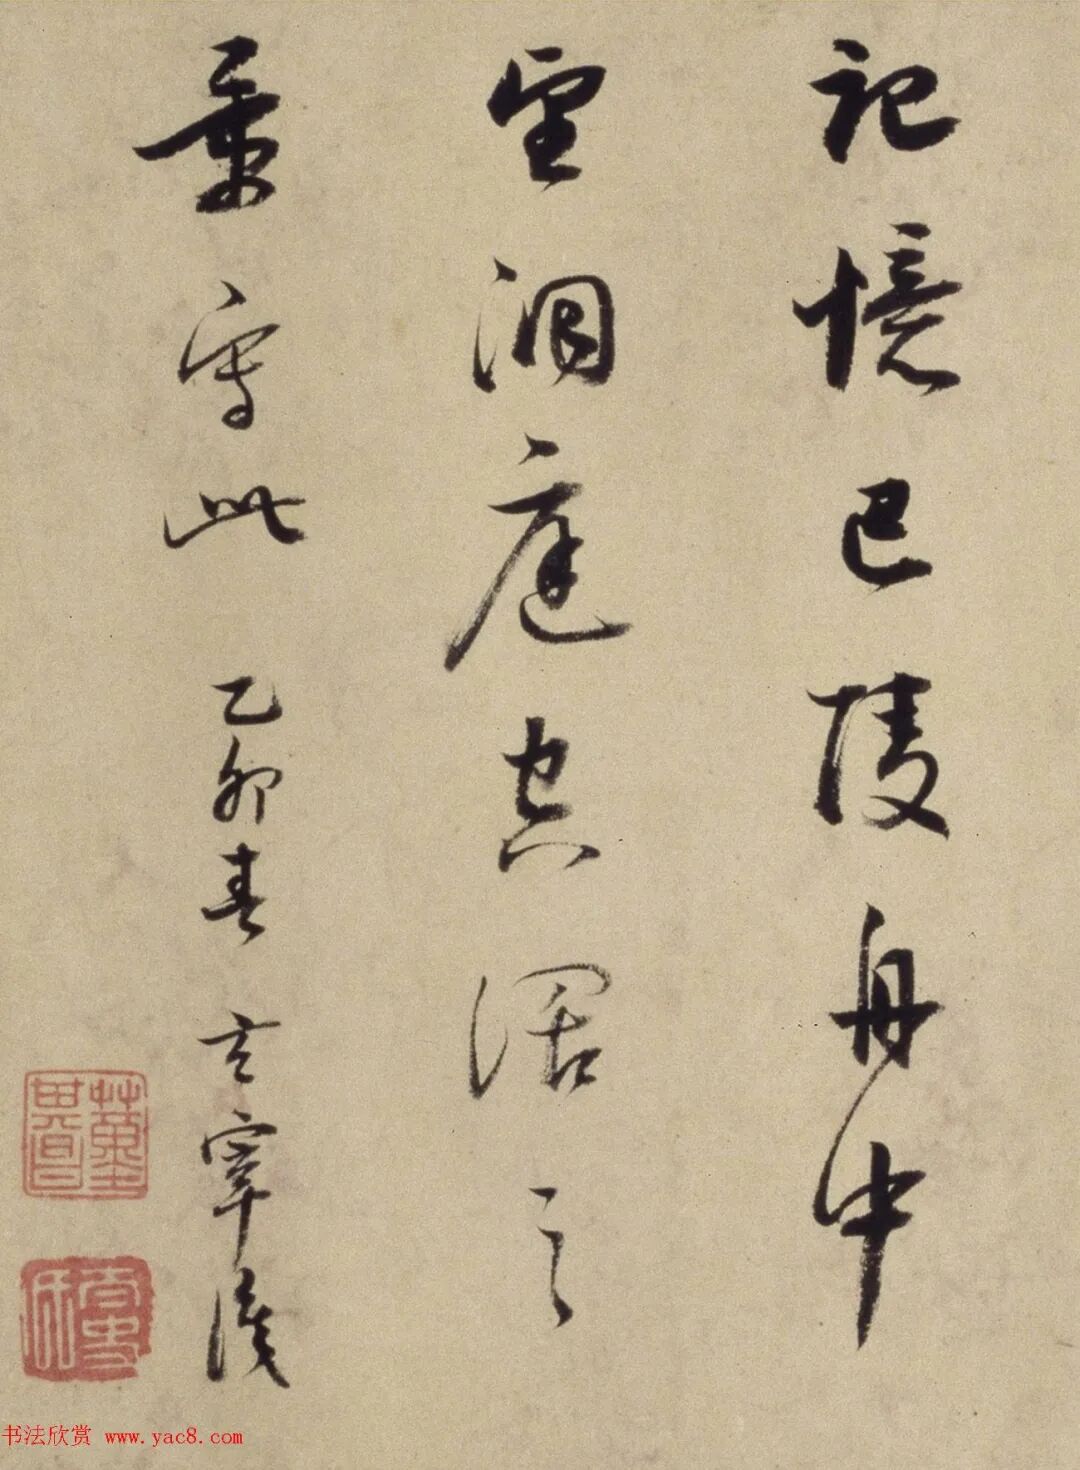 记憶巴陵舟中
望洞庭空阔之
景寫此 乙卯春 玄宰識
董其昌
書法欣赏 www.yac8.com